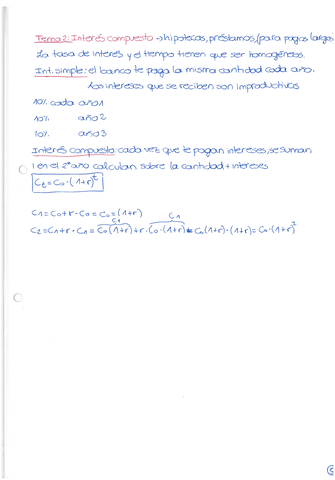 Tema 2: Interés compuesto → hipotecas, préstamos, (para pagos largos
La tasa de interés y el tiempo tienen que ser homogéneas.
Int. simple: el banco te paga la misma cantidad cada año.
Los intereses que se reciben son improductivos
10% cada año 1
10% año 2
10% año 3
Interés compuesto: cada vez que te pagan intereses, se suman
y en el 2º año calculan sobre la cantidad + intereses
Ct = C0 · (1+r)^t
C1 = C0 + r · C0 = C0 = (1+r)
C1 C1
C2 = C1 + r · C1 = C0 (1+r) + r · C0 · (1+r) = C0 (1+r) · (1+r) = C0 · (1+r)^2